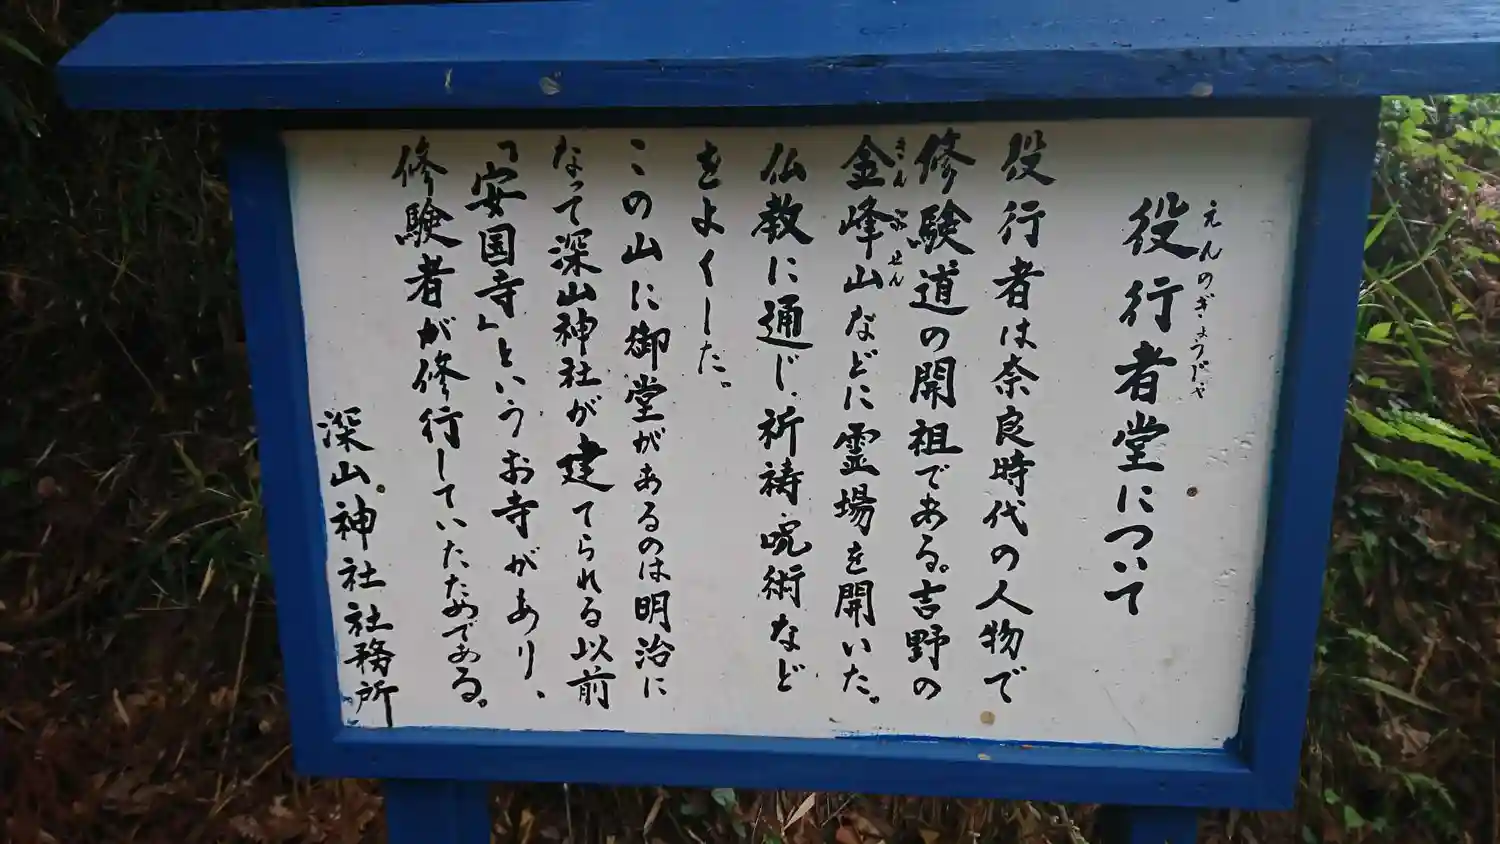 役行者堂について
えんのぎょうじゃ
役行者は奈良時代の人物で
修験道の開祖である。吉野の
金峰山などに霊場を開いた。
きんぷせん
仏教に通じ、祈祷・呪術など
をよくした。
この山に御堂があるのは明治に
なって深山神社が建てられる以前
「安国寺」というお寺があり、
修験者が修行していたためである。
深山神社社務所